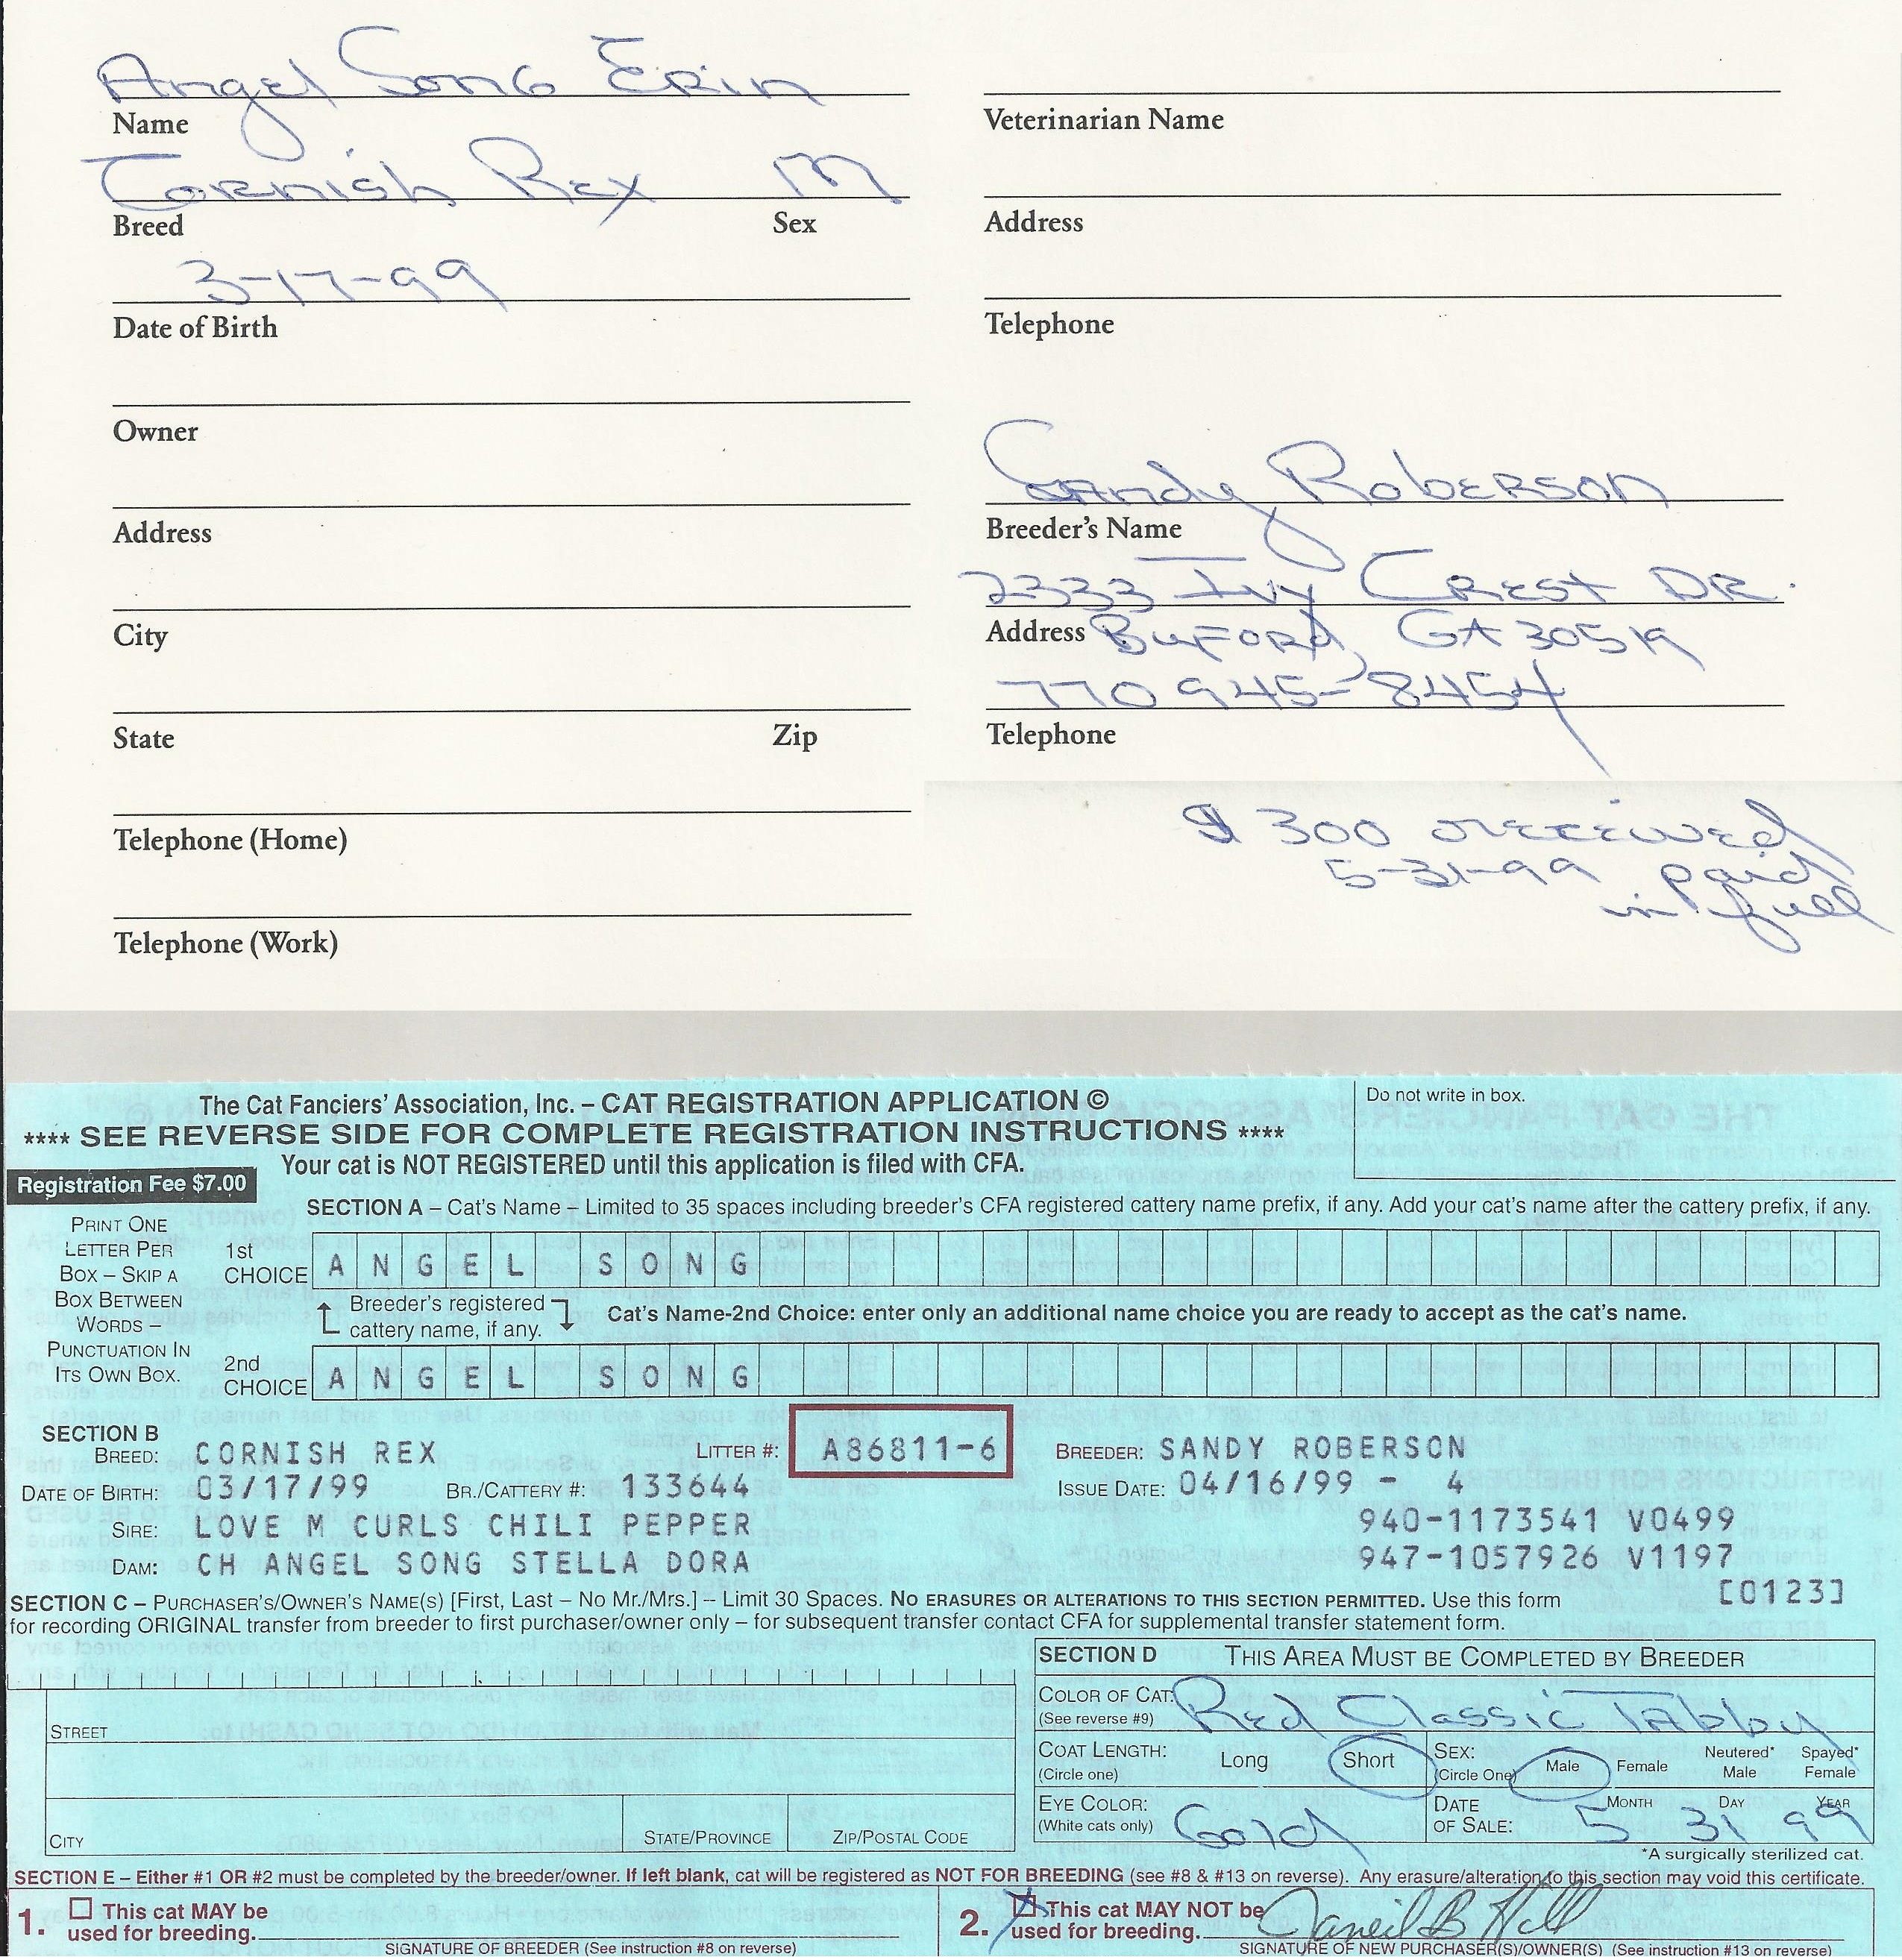 Angel Song Erin
Name
Cornish Rex M
Breed Sex
3-17-99
Date of Birth
Owner
Address
City
State Zip
Telephone (Home)
Telephone (Work)
Veterinarian Name
Address
Telephone
Sandy Roberson
Breeder's Name
2333 Ivy Crest DR.
Address Buford, GA 30519
770 945-8454
Telephone
$300 received
5-31-99 paid
in full
The Cat Fanciers' Association, Inc. – CAT REGISTRATION APPLICATION ©
**** SEE REVERSE SIDE FOR COMPLETE REGISTRATION INSTRUCTIONS ****
Your cat is NOT REGISTERED until this application is filed with CFA.
Do not write in box.
Registration Fee $7.00
SECTION A – Cat's Name – Limited to 35 spaces including breeder's CFA registered cattery name prefix, if any. Add your cat's name after the cattery prefix, if any.
PRINT ONE
LETTER PER
BOX – SKIP A
BOX BETWEEN
WORDS –
PUNCTUATION IN
ITS OWN BOX.
1st
CHOICE ANGEL SONG
Breeder's registered
cattery name, if any.
Cat's Name-2nd Choice: enter only an additional name choice you are ready to accept as the cat's name.
2nd
CHOICE ANGEL SONG
SECTION B
BREED: CORNISH REX LITTER #: A86811-6 BREEDER: SANDY ROBERSON
DATE OF BIRTH: 03/17/99 BR./CATTERY #: 133644 ISSUE DATE: 04/16/99 - 4
SIRE: LOVE M CURLS CHILI PEPPER 940-1173541 V0499
DAM: CH ANGEL SONG STELLA DORA 947-1057926 V1197
[0123]
SECTION C – PURCHASER'S/OWNER'S NAME(S) [First, Last – No Mr./Mrs.] – Limit 30 Spaces. NO ERASURES OR ALTERATIONS TO THIS SECTION PERMITTED. Use this form
for recording ORIGINAL transfer from breeder to first purchaser/owner only – for subsequent transfer contact CFA for supplemental transfer statement form.
STREET
CITY STATE/PROVINCE ZIP/POSTAL CODE
SECTION D THIS AREA MUST BE COMPLETED BY BREEDER
COLOR OF CAT: Red Classic Tabby
(See reverse #9)
COAT LENGTH: Long Short
(Circle one)
SEX: Male Female Neutered* Male Spayed* Female
(Circle One)
EYE COLOR: Gold
(White cats only)
DATE OF SALE: MONTH DAY YEAR
5 31 99
*A surgically sterilized cat.
SECTION E – Either #1 OR #2 must be completed by the breeder/owner. If left blank, cat will be registered as NOT FOR BREEDING (see #8 & #13 on reverse). Any erasure/alteration to this section may void this certificate.
1. This cat MAY be
used for breeding.
SIGNATURE OF BREEDER (See instruction #8 on reverse)
2. This cat MAY NOT be
used for breeding. Janeil B Hill
SIGNATURE OF NEW PURCHASER(S)/OWNER(S) (See instruction #13 on reverse)